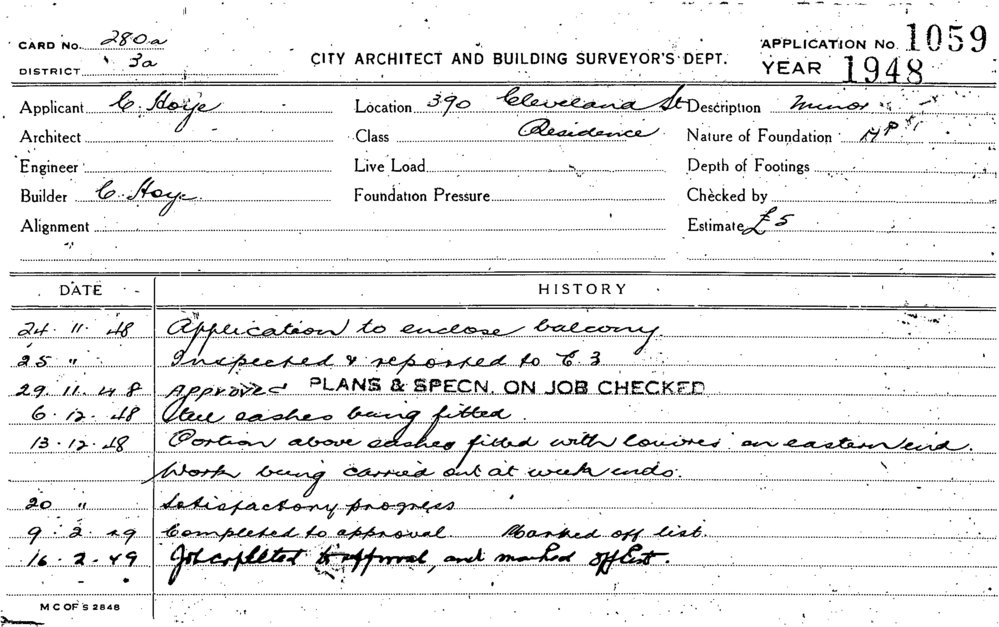 CARD No. 280a
DISTRICT 3a
CITY ARCHITECT AND BUILDING SURVEYOR'S DEPT.
APPLICATION No. 1059
YEAR 1948
Applicant C. Hoye Location 390 Cleveland St Description Minor
Architect Class Residence Nature of Foundation
Engineer Live Load Depth of Footings
Builder C. Hoye Foundation Pressure Checked by
Alignment Estimate £5
DATE HISTORY
24.11.48 Application to enclose balcony
25 " Inspected & reported to C3
29.11.48 Approved PLANS & SPECN. ON JOB CHECKED
6.12.48 sashes being fitted.
13.12.48 Portion above sashes fitted with louvres on eastern end.
Work being carried out at week ends.
20 " Satisfactory progress
9.2.49 Completed to approval. Marked off list.
16.2.49 Job copleted to approval, and marked off list.
M C OF S 2848